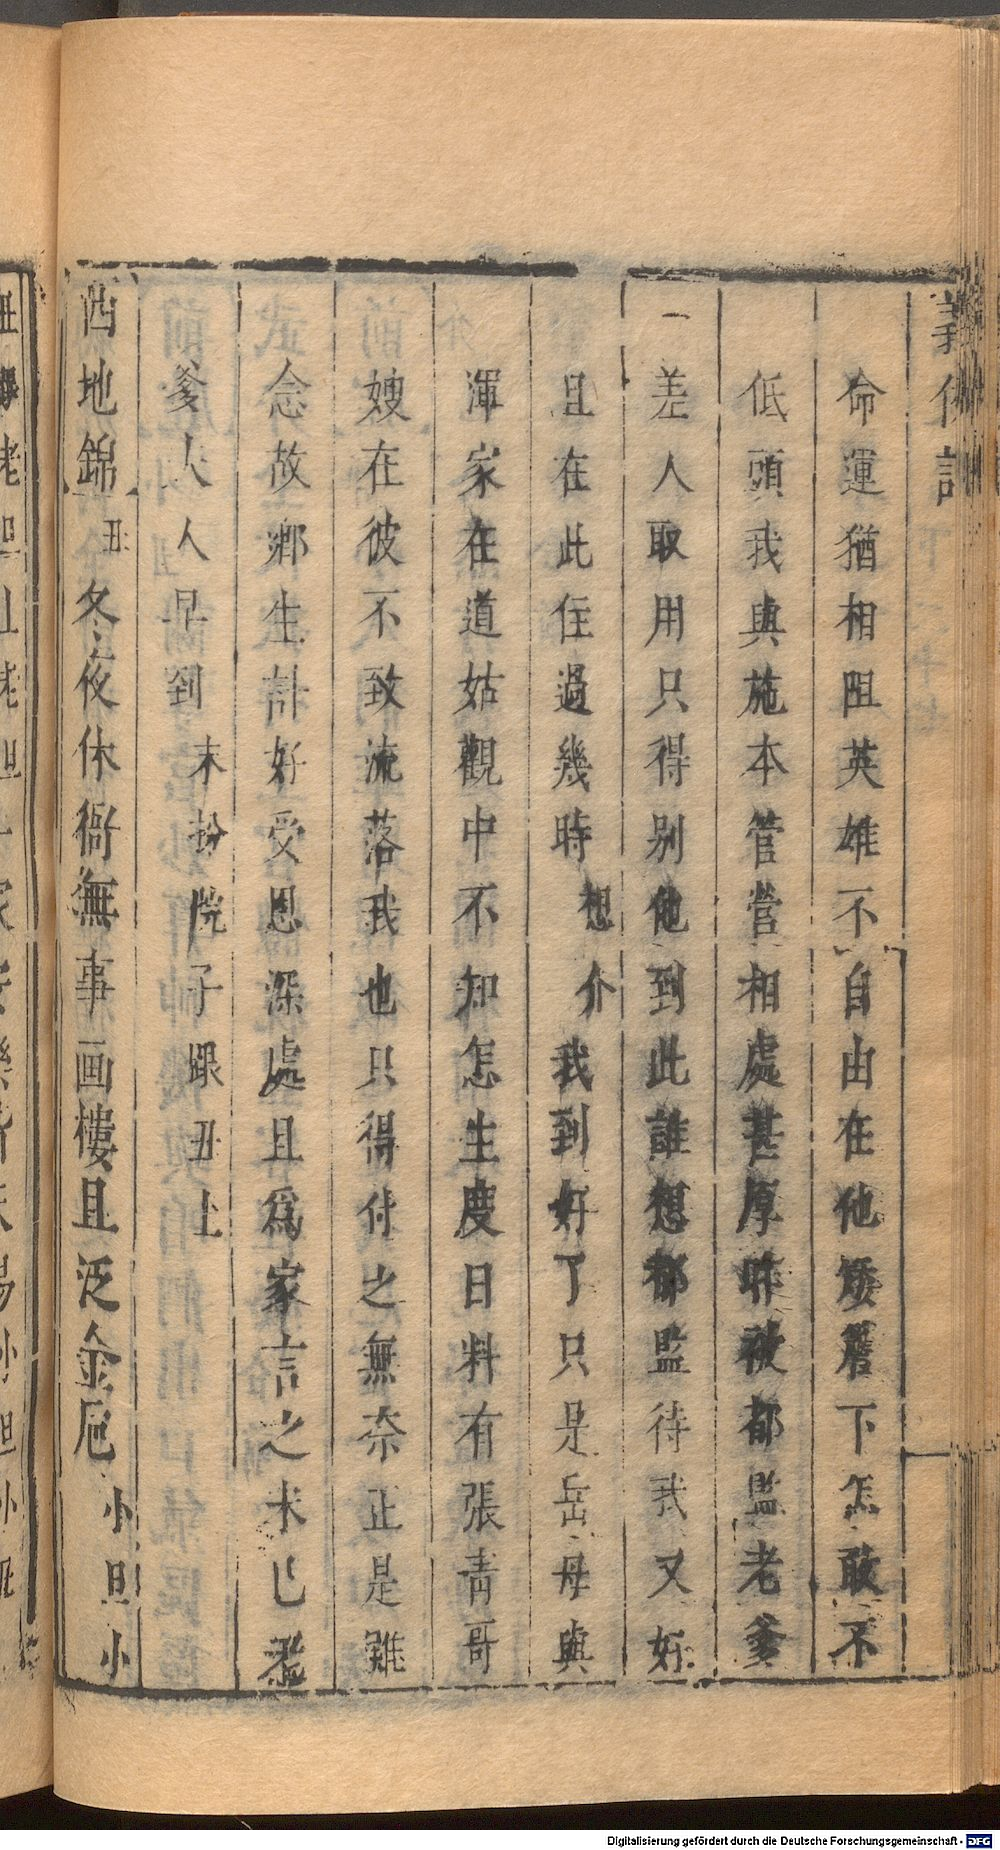 義俠記
命運猶相阻英雄不自由在他矮簷下怎敢不
低頭我與施本管營相處甚厚昨被都監老爹
一差人取用只得别他到此誰想都監待我又好
且在此住過幾時想介我到好了只是岳母與
渾家在道姑觀中不知怎生度日料有張青哥
嫂在彼不致流落我也只得付之無奈正是雖
念故鄉生計好受恩深處且爲家言之未已
爹大人早到末扮院子跟丑上
西地錦丑冬夜休衙無事画樓且泛金卮小旦小
Digitalisierung gefördert durch die Deutsche Forschungsgemeinschaft - DFG